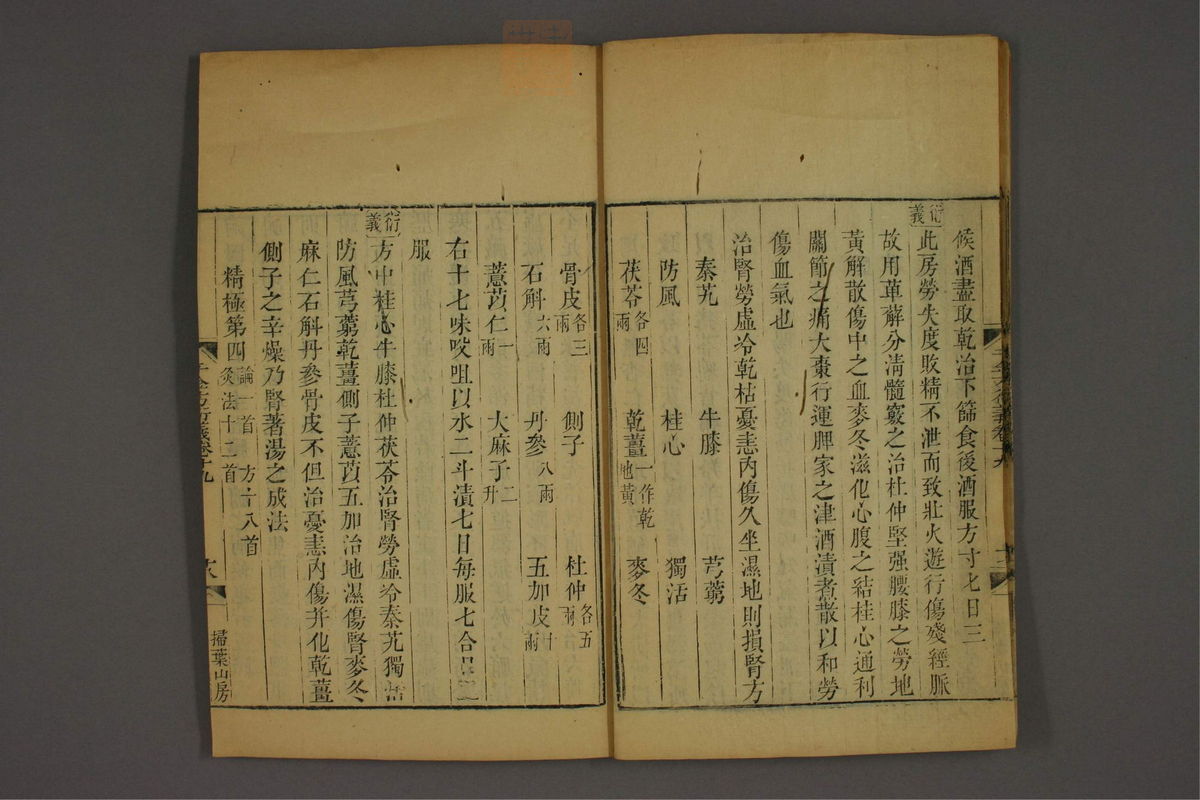 候酒盡取乾治下篩食後酒服方寸七日三
衍義
此房勞失度敗精不泄而致壯火遊行傷殘經脈
故用萆薢分清髓竅之治杜仲堅强腰膝之勞地
黃解散傷中之血麥冬滋化心腹之結桂心通利
關節之痛大棗行運脾家之津酒漬者散以和勞
傷血氣也
治腎勞虛冷乾枯憂恚內傷久坐濕地則損腎方
秦艽 牛膝 芎藭
防風 桂心 獨活
茯苓各四兩 乾薑一作乾地黃 麥冬
骨皮各三兩 側子 杜仲各五兩
石斛六兩 丹參八兩 五加皮十兩
薏苡仁一兩 大麻子二升
右十七味㕮咀以水二斗漬七日每服七合日二
服
衍義
方中桂心牛膝杜仲茯苓治腎勞虛冷秦艽獨活
防風芎藭乾薑側子薏苡五加治地濕傷腎麥冬
麻仁石斛丹參骨皮不但治憂恚內傷并化乾薑
側子之辛燥乃腎著湯之成法
精極第四論一首 方十八首 灸法十二首
掃葉山房